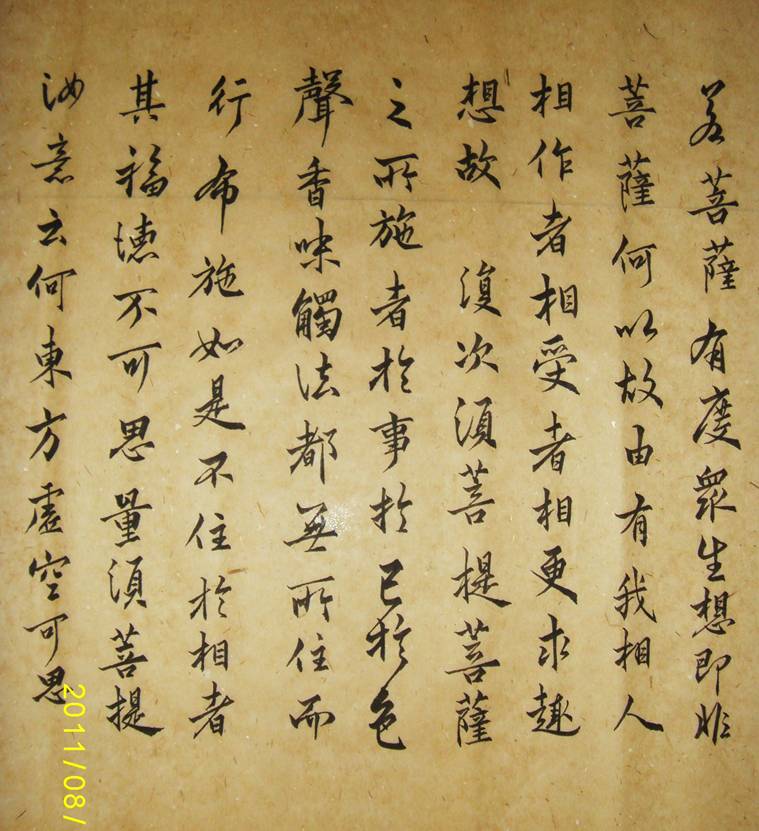 若菩薩有度衆生想即非
菩薩何以故由有我相人
相作者相受者相更求趣
想故 復次須菩提菩薩
之所施者於事於己於色
聲香味觸法都無所住而
行布施如是不住於相者
其福德不可思量須菩提
汝意云何東方虛空可思
2011/08/